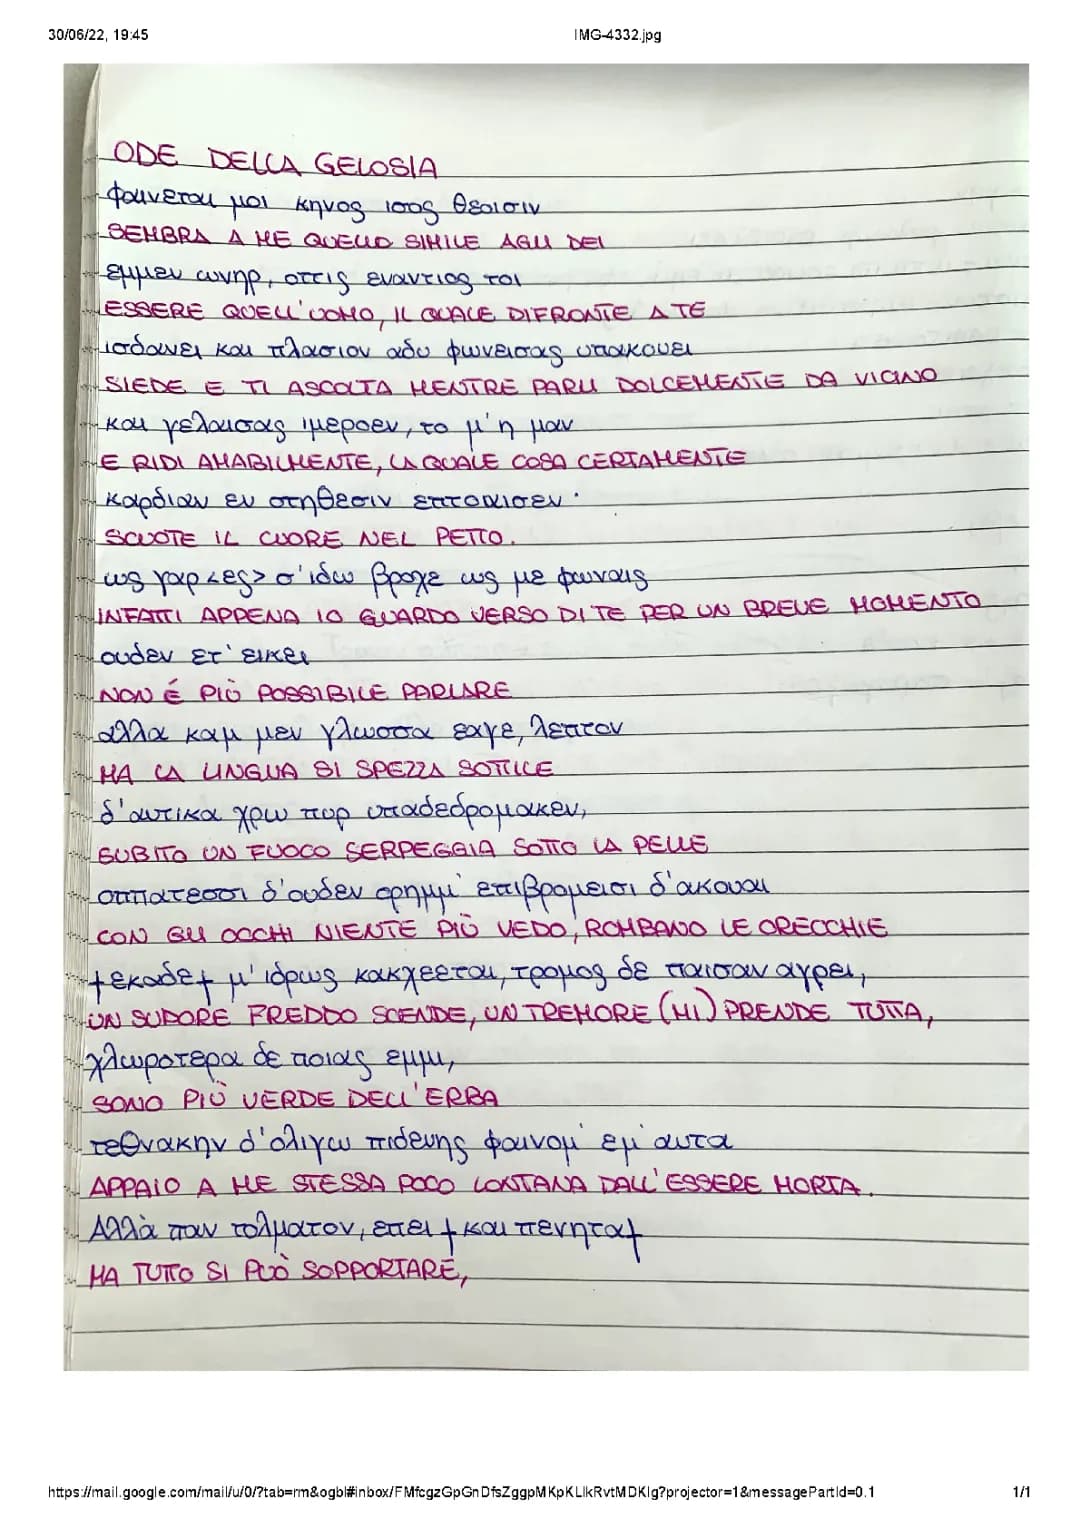 30/06/22, 19:45 IMG-4332.jpg
ODE DELLA GELOSIA
φαινεται μοι κηνος ισος θεοισιν
SEMBRA A ME QUELLO SIMILE AGLI DEI
εμμεν ωνηρ, οττις εναντιος τοι
ESSERE QUELL'UOMO, IL QUALE DIFRONTE A TE
ισδανει και πλασιον αδυ φωνεισας υπακουει
SIEDE E TI ASCOLTA MENTRE PARLI DOLCEMENTE DA VICINO
και γελαισας ιμεροεν, το μ'η μαν
E RIDI AMABILMENTE, LA QUALE COSA CERTAMENTE
καρδιαν εν στηθεσιν επτοαισεν·
SCUOTE IL CUORE NEL PETTO.
ως γαρ <ες> σ'ιδω βροχε ως με φωναις
INFATTI APPENA IO GUARDO VERSO DI TE PER UN BREVE MOMENTO
ουδεν ετ' εικει
NON É PIÙ POSSIBILE PARLARE
αλλα καμ μεν γλωσσα εαγε, λεπτον
MA LA LINGUA SI SPEZZA SOTTILE
δ'αυτικα χρω πυρ υπαδεδρομακεν,
SUBITO UN FUOCO SERPEGGIA SOTTO LA PELLE
οππατεσσι δ'ουδεν ορημμ' επιβρομεισι δ'ακουαι
CON GLI OCCHI NIENTE PIÙ VEDO, ROMBANO LE ORECCHIE
†εκαδε† μ'ιδρως κακχεεται, τρομος δε παισαν αγρει,
UN SUDORE FREDDO SCENDE, UN TREMORE (MI) PRENDE TUTTA,
χλωροτερα δε ποιας εμμι,
SONO PIÙ VERDE DELL'ERBA
τεθνακην δ'ολιγω πιδευης φαινομ' εμ'αυτα
APPAIO A ME STESSA POCO LONTANA DALL'ESSERE MORTA.
Αλλὰ παν τολματον, επει † και πενητα†
MA TUTTO SI PUÒ SOPPORTARE,
https://mail.google.com/mail/u/0/?tab=rm&ogbl#inbox/FMfcgzGpGnDfsZggpMKpKLlkRvtMDKlg?projector=1&messagePartId=0.1 1/1